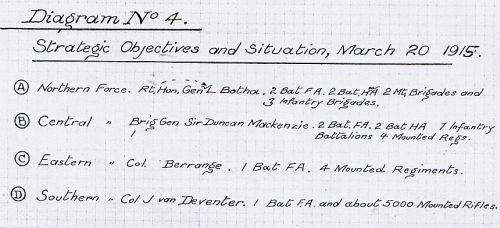 Diagram No 4.
Strategic Objectives and Situation, March 20 1915.
(A) Northern Force. Rt, Hon, Gen'l Botha. 2 Bat F.A. 2 Bat, HA 2 Mt, Brigades and
3 Infantry Brigades.
(B) Central " Brig Gen Sir Duncan Mackenzie. 2 Bat, F.A. 2 Bat HA 7 Infantry
1 Battalions 4 Mounted Regs.
(C) Eastern " Col. Berrange. 1 Bat FA. 4 Mounted Regiments.
(D) Southern " Col J van Deventer. 1 Bat F.A. and about 5000 Mounted Rifles.